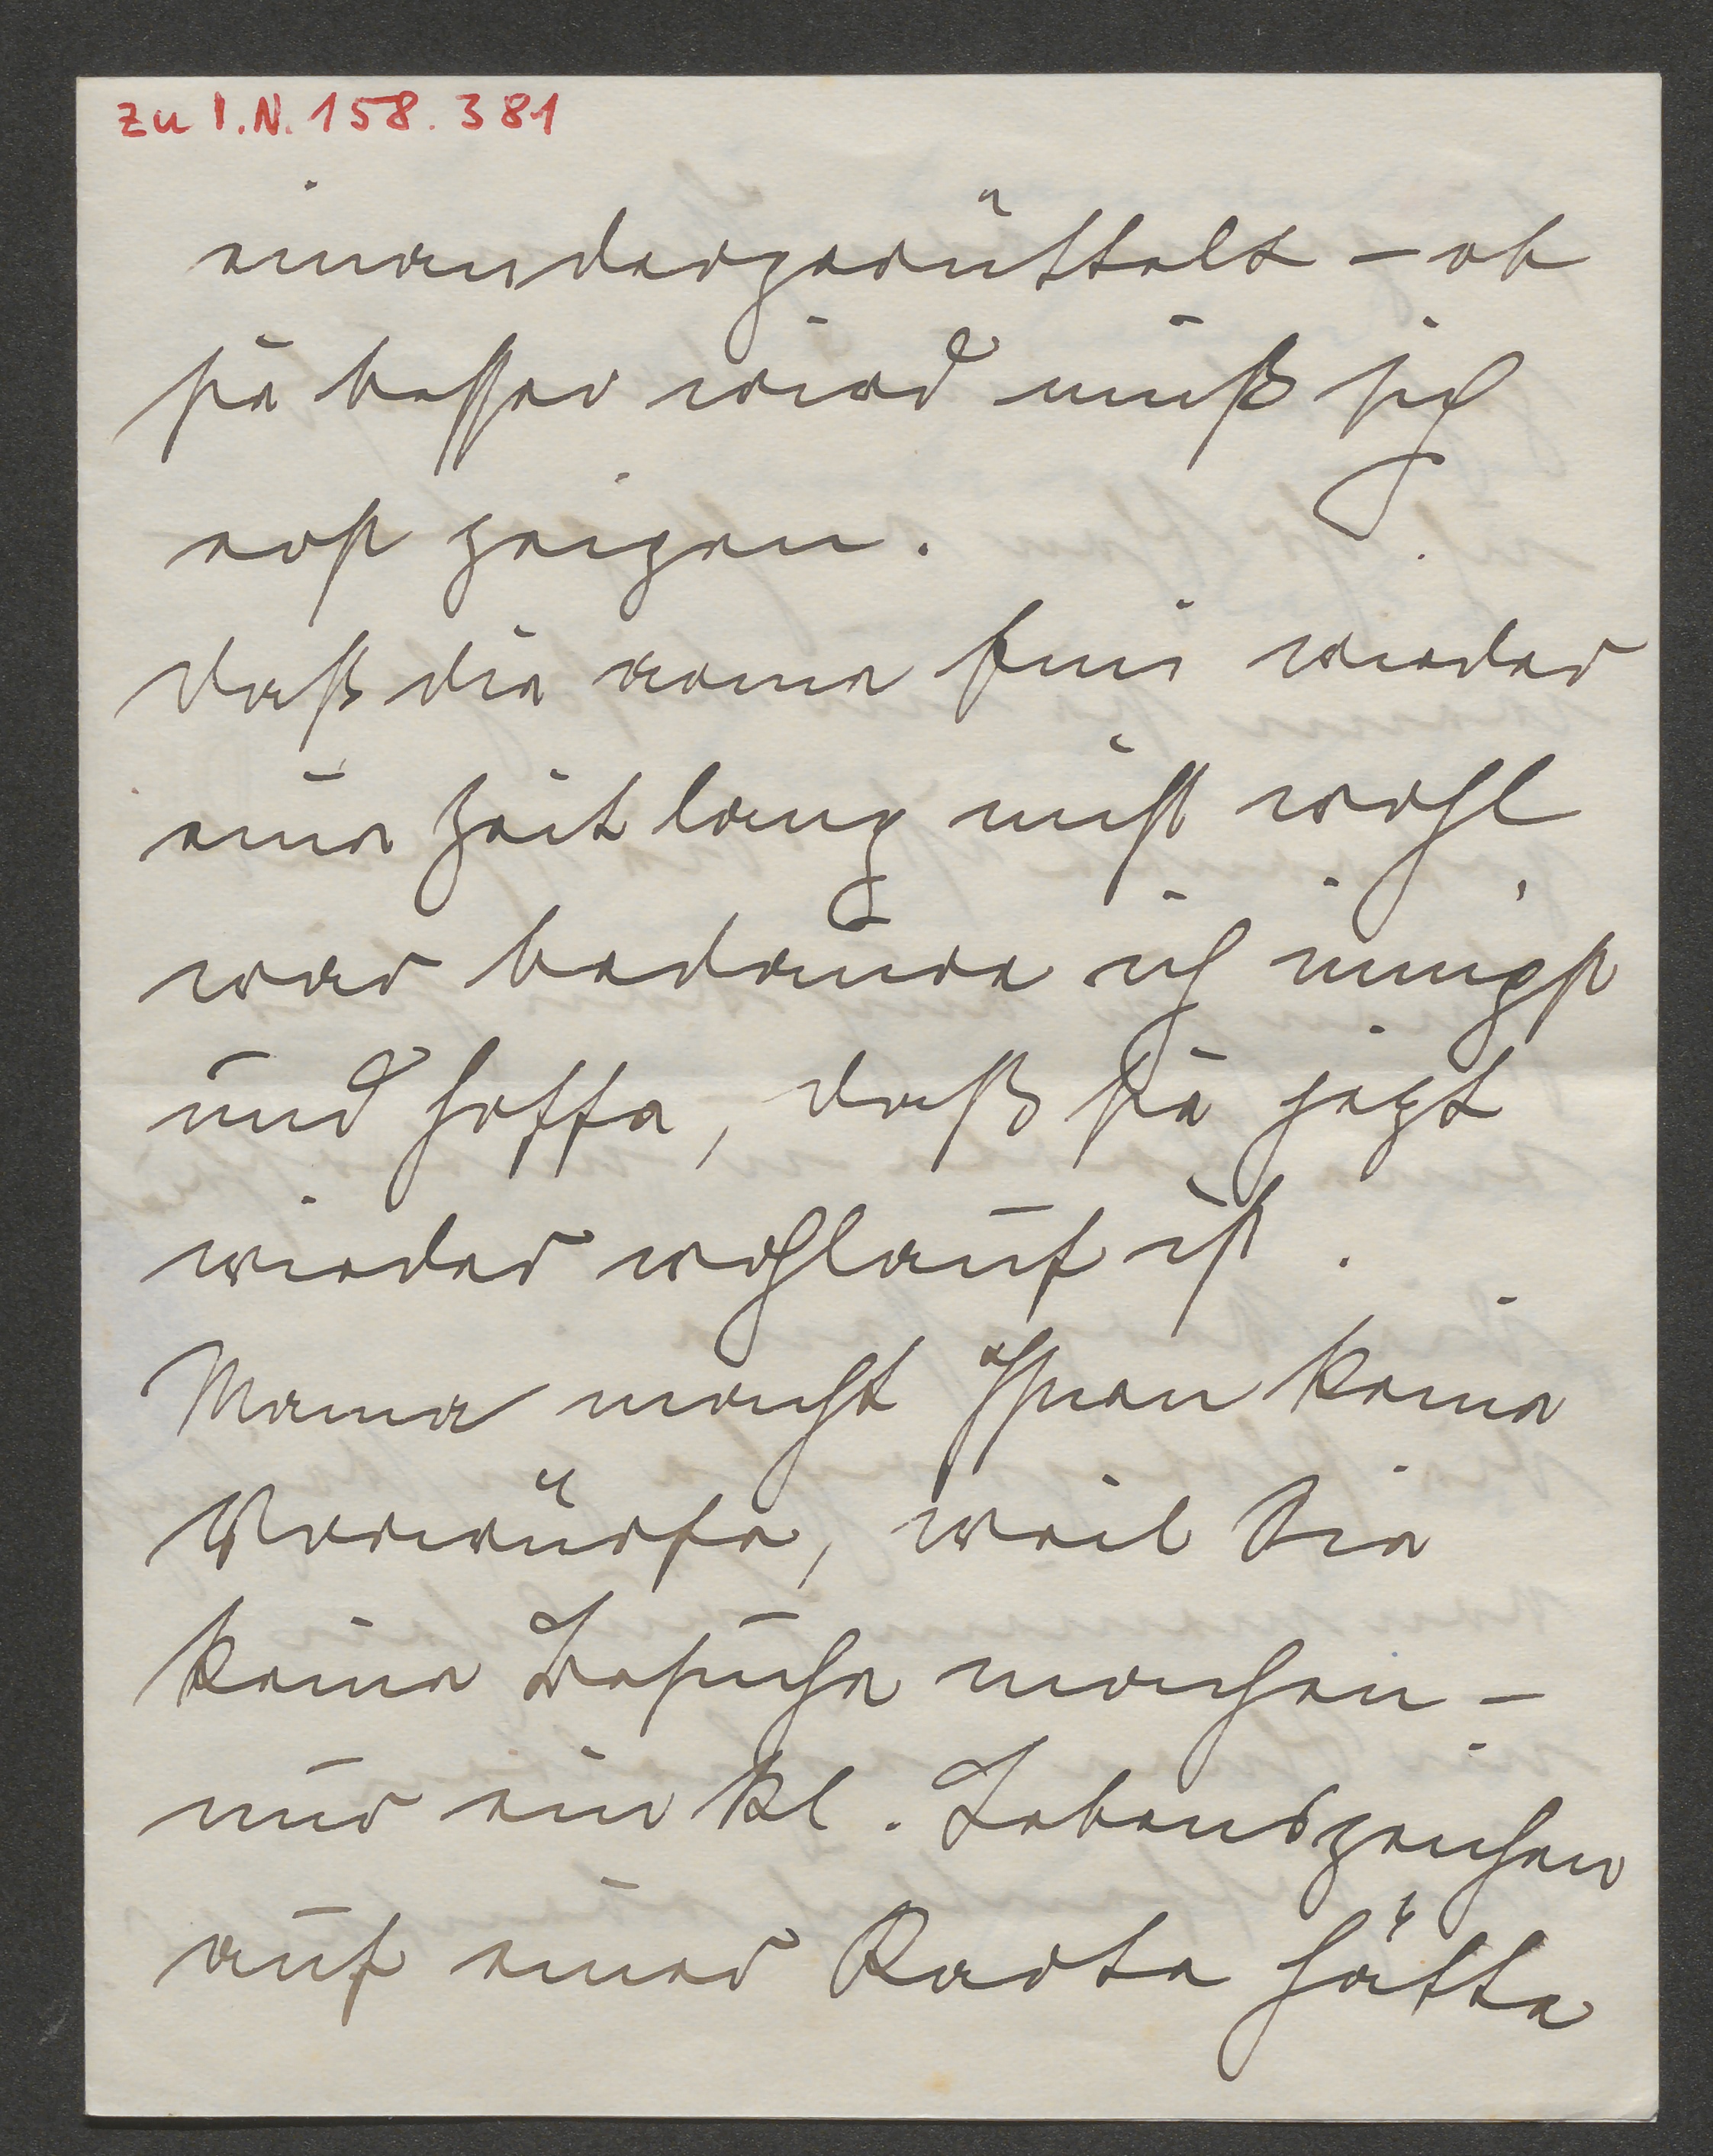 zu I.N. 158.381
einandergerüttelt – ob
sie besser wird muß sich
erst zeigen.
Daß die arme Fini wieder
eine Zeit lang nicht wohl
war bedaure ich innigst
und hoffe, daß sie jezt
wieder wohlauf ist.
Mama macht Ihnen keine
Vorwürfe, weil Sie
keine Besuche machen –
nur ein kl. Lebenszeichen
auf einer Karte hätte